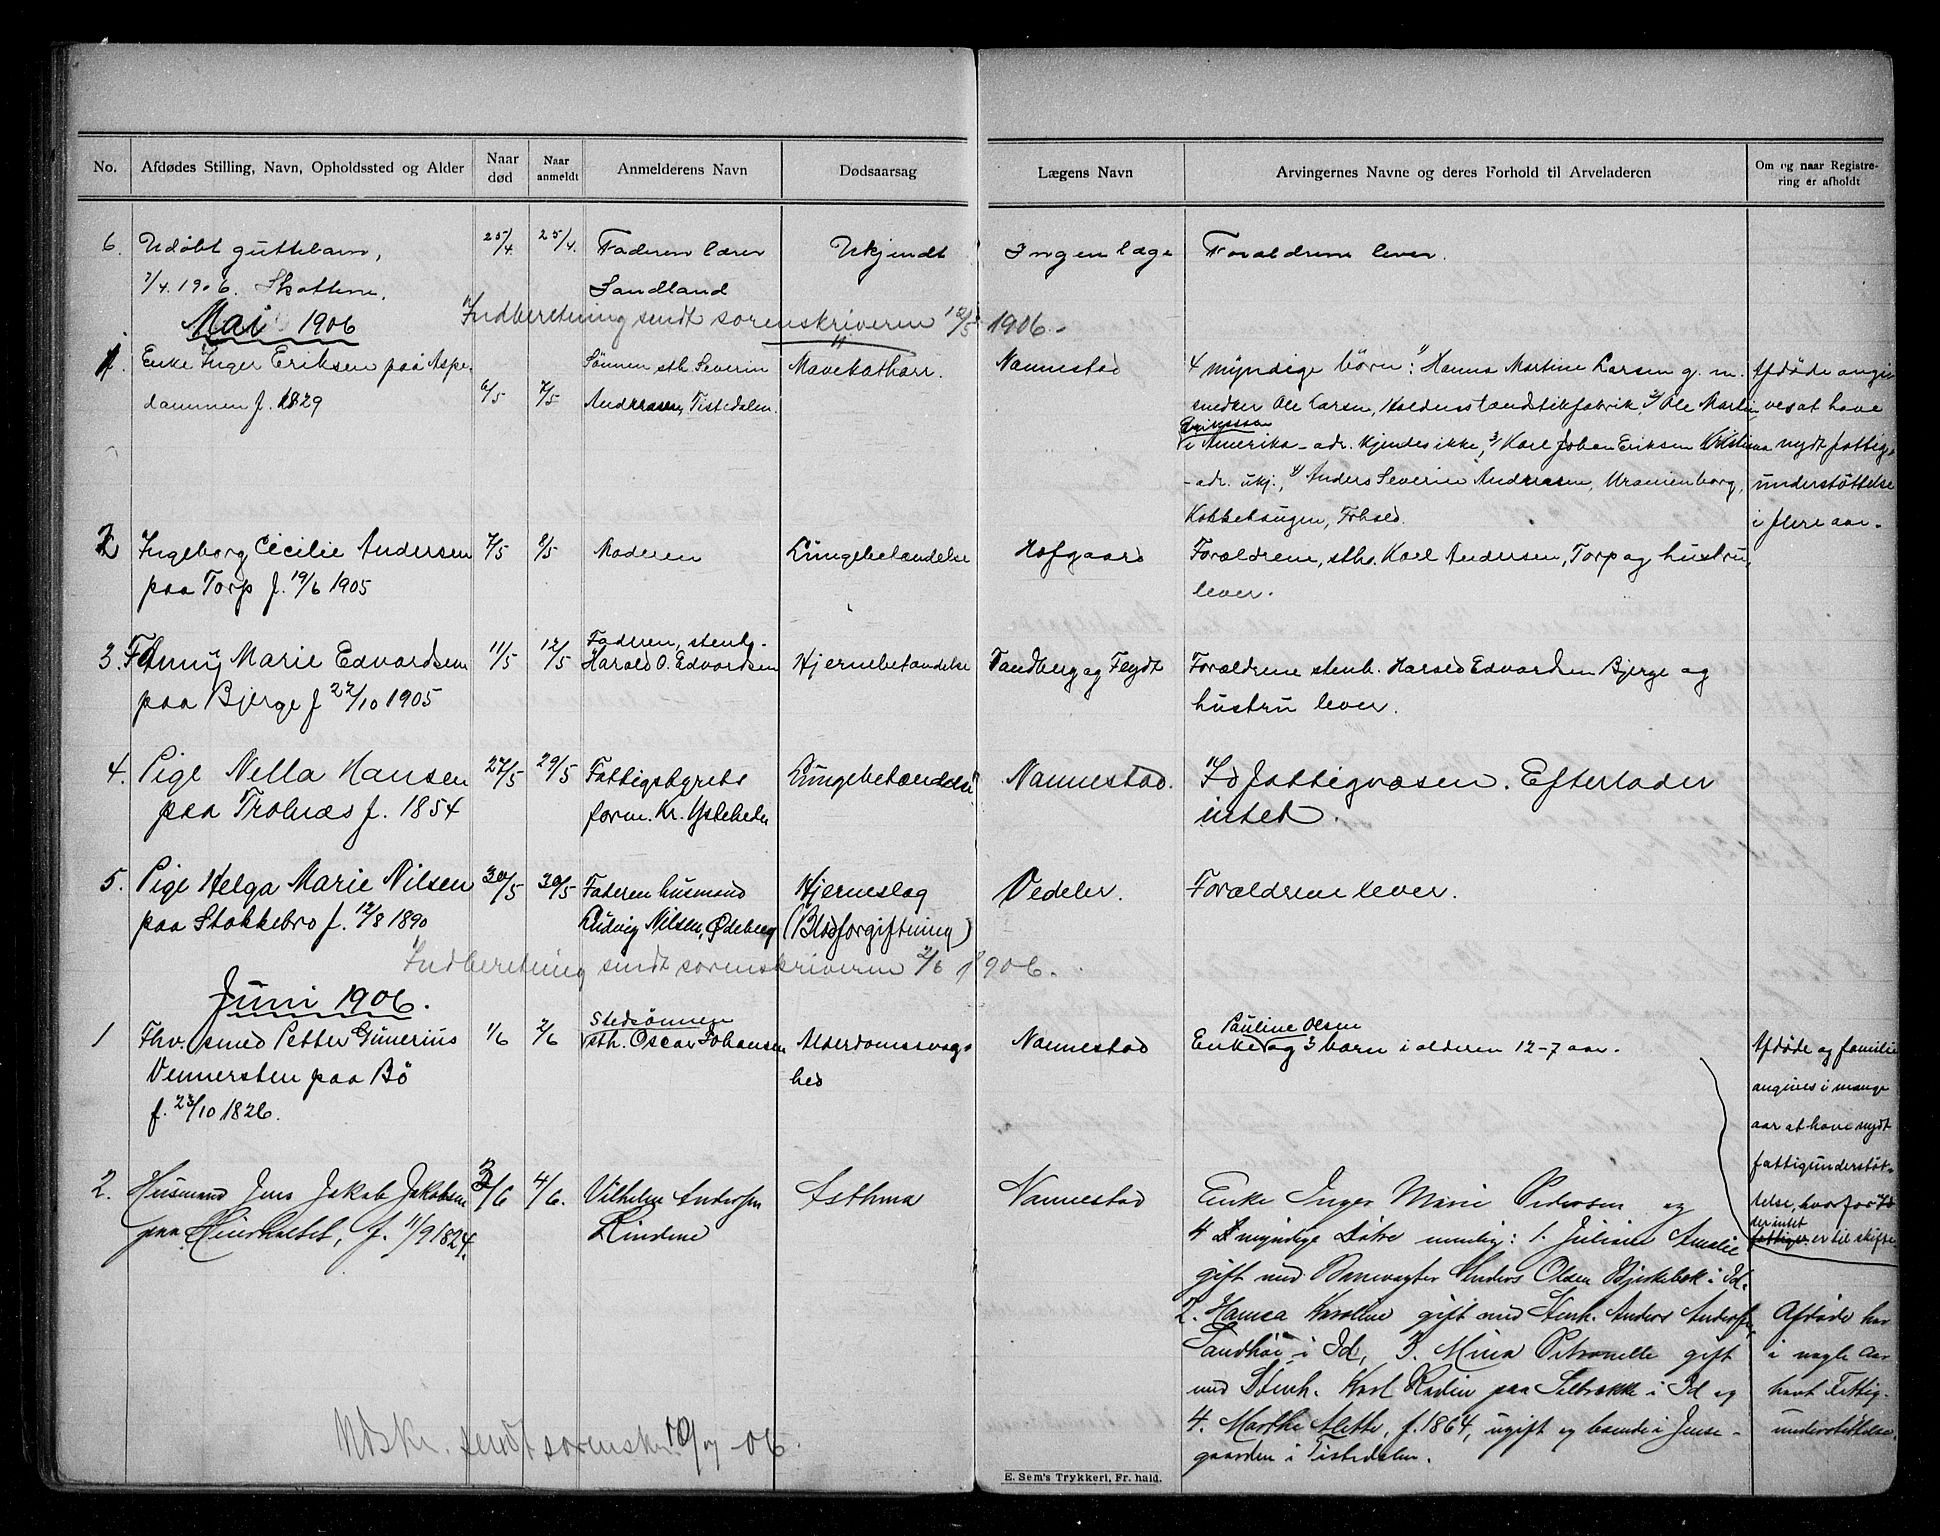 No.
Afdødes Stilling, Navn, Opholdssted og Alder
Naar død
Naar anmeldt
Anmelderens Navn
Dødsaarsag
Lægens Navn
Arvingernes Navne og deres Forhold til Arveladeren
Om og naar Registrering er afholdt
6. Udøbt guttebarn, 25/4 25/4. Faderen lærer Ukjendt Ingen læge Forældrene lever.
7/4 1906. Skottene. Sandland
Indberetning sendt sorenskriveren 12/5 1906.
Mai 1906
1. Enke Inger Eriksen paa Aspe
dammen f. 1829
6/5 7/5
Sønnen sth. Severin
Andreasen, Tistedalen.
Mavekatharr.
Nannestad
4 myndige børn: 1/ Hanna Martine Larsen g. m.
snedker Ole Larsen, Holdens tændstikfabrik, 2/ Ole Martin
Eriksson
i Amerika - adr. kjendes ikke, 3/ Karl Johan Eriksen Kristiania
- adr. ukj., 4/ Anders Severin Andreasen, Uranienborg,
Kokkehaugen, Frhald.
Afdøde angi
ves at have
nydt fattig
understøttelse
i flere aar.
2 Ingeborg Cecilie Andersen 7/5 9/5 Moderen Lungebetændelse Hofgaard Forældrene, sth. Karl Andersen, Torp og hustru,
paa Torp f. 19/6 1905 lever.
3. Fanny Marie Edvardsen 11/5 12/5
paa Bjerge f 22/10 1905
Faderen, stenh.
Harald O. Edvardsen
Hjernebetændelse
Sandberg og Feydt
Forældrene stenh. Harald Edvardsen Bjerge og
hustru lever.
4. Pige Nella Hansen 27/5 29/5 Fattigstyrets Lungebetændelse Nannestad. Id fattigvæsen. Efterlader
paa Trolnæs f. 1854 form. Kr. Ystehede intet.
5. Pige Helga Marie Nilsen 30/5 30/5 Faderen husmand Hjerneslag Vedeler. Forældrene lever.
paa Stokkebro f. 12/8 1890 Ludvig Nilsen, Ødeberg (Blodforgiftning)
Indberetning sendt sorenskriveren 2/6 1906.
Juni 1906.
1 Fhv. smed Petter Gunerius 1/6 2/6
Vennersten paa Bö
f. 23/10 1826.
Stedsønnen
sth. Oscar Johansen
Alderdomssvag
hed
Nannestad
Pauline Olsen
Enke og 3 børn i alderen 12-7 aar.
Afdøde og familie
angives i mange
aar at have nydt
fattigunderstøt-
telse, hvorfor Id
der intet
fattigv. er til skifte.
2. Husmand Jens Jakob Jakobsen 3/6 4/6. Vilhelm Andersen Asthma Nannestad
paa , f. 11/9 1824. Lindene
Enke Inger Marie Pedersen og
4 myndige Døtre nemlig: 1. Juliane Amalie
gift med Banevogter Anders Olsen Bjerkebæk i Id.
2. Hanna Karoline gift med Stenh. Anders Andersen,
Sandhøi i Id, 3. Mina Petronelle gift
med Stenh. Karl Rodin paa i Id og
4. Marthe Alette, f. 1864, ugift og boende i Jense-
gaarden i Tistedalen.
Afdøde har
i nogle Aar
havt Fattig-
understøttelse.
Udskr. sendt sorenskr. 10/7 -06.
E. Sem's Trykkeri, Fr.hald.